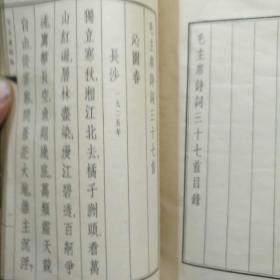 毛主席詩詞三十七首目錄
毛主席詩詞三十七首
沁園春
長沙 一九二五年
獨立寒秋，湘江北去，橘子洲頭。看萬
山紅遍，層林盡染；漫江碧透，百舸爭
流。鷹擊長空，魚翔淺底，萬類霜天競
自由。悵寥廓，問蒼茫大地，誰主沉浮？